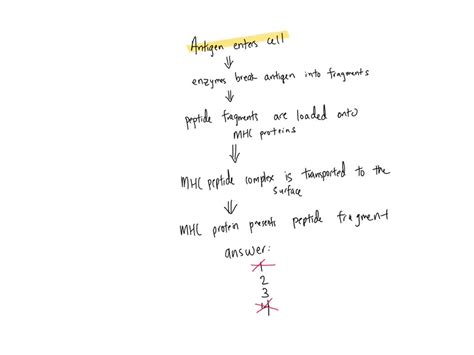 Antigen enters cell
enzymes break antigen into fragments
peptide fragments are loaded onto
MHC proteins
MHC peptide complex is transported to the
surface
MHC protein presents peptide fragment
answer:
1
2
3
4